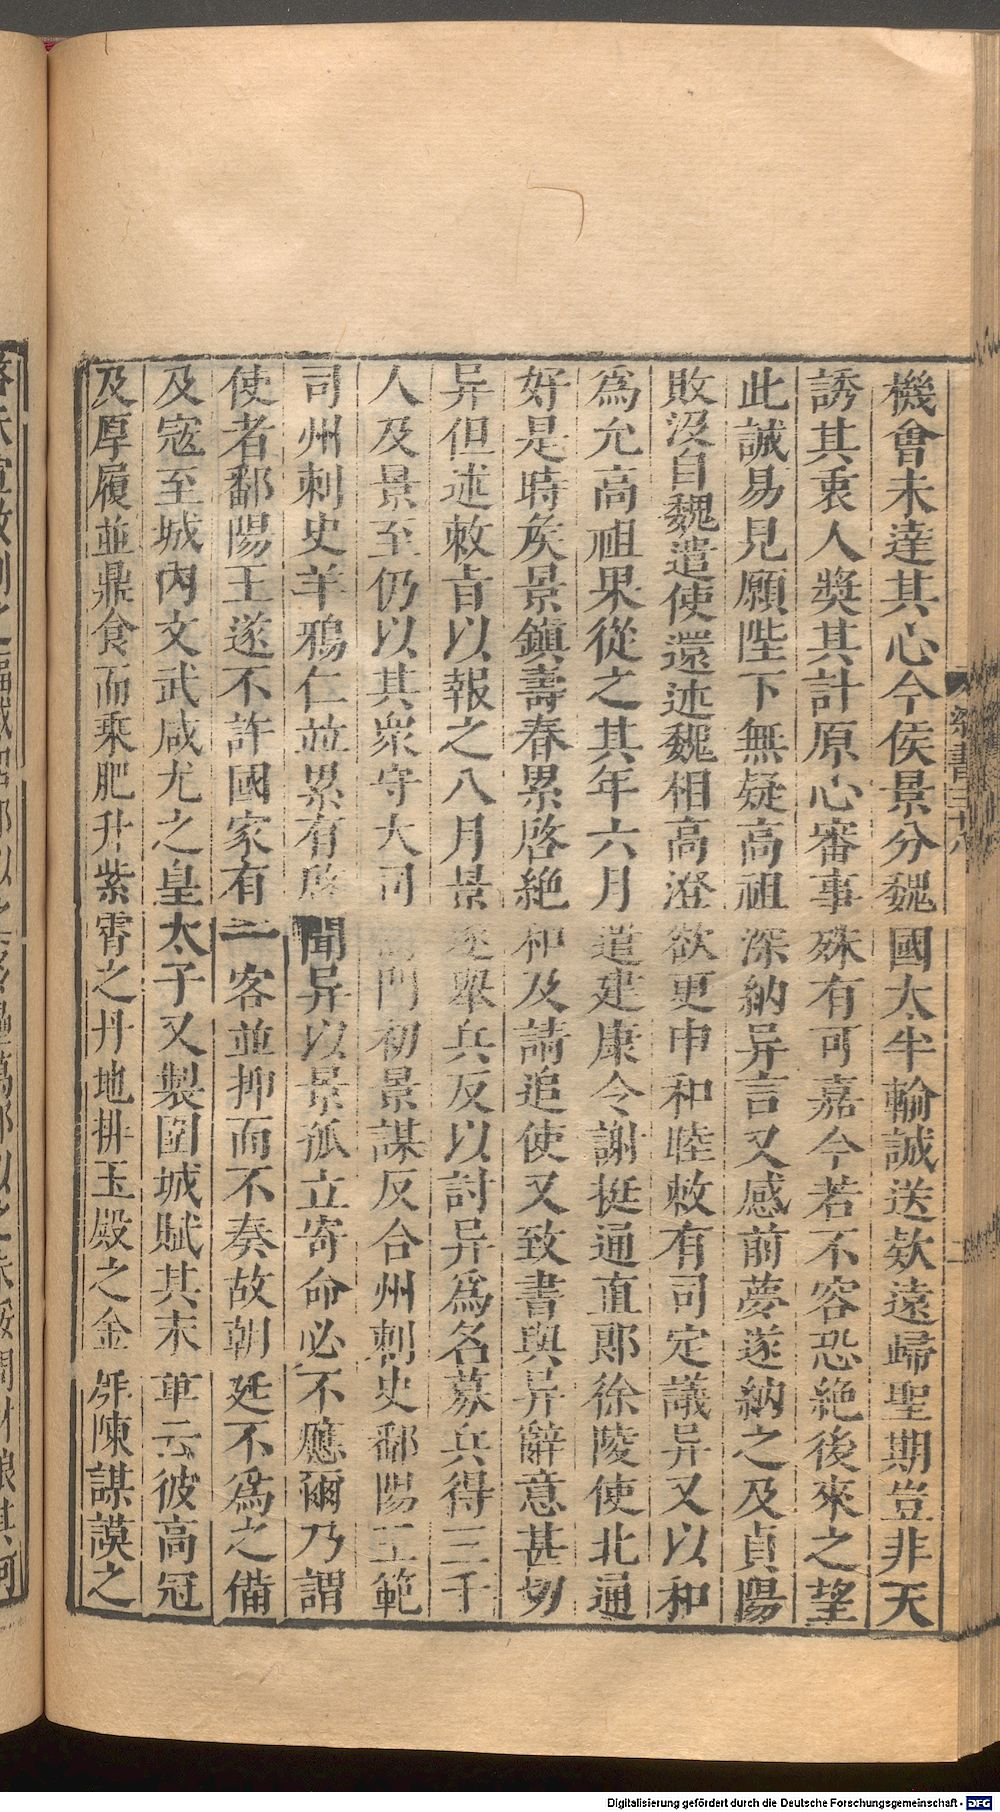 機會未達其心今侯景分魏國太半輸誠送欵遠歸聖期豈非天
誘其衷人奬其計原心審事殊有可嘉今若不容恐絶後來之望
此誠易見願陛下無疑高祖深納异言又感前夢遂納之及貞陽
敗没自魏遣使還述魏相高澄欲更申和睦敕有司定議异又以和
爲允高祖果從之其年六月遣建康令謝挺通直郎徐陵使北通
好是時侯景鎮壽春累啓絶和及請追使又致書與异辭意甚切
异但述敕旨以報之八月景遂舉兵反以討异爲名募兵得三千
人及景至仍以其衆守大司馬門初景謀反合州刺史鄱陽王範
司州刺史羊鴉仁並累有啓聞异以景孤立寄命必不應爾乃謂
使者鄱陽王遂不許國家有一客並抑而不奏故朝廷不爲之備
及寇至城內文武咸尤之皇太子又製圍城賦其末章云彼高冠
及厚履並鼎食而乘肥升紫霄之丹地排玉殿之金扉陳謀謨之
梁書三十八
Digitalisierung gefördert durch die Deutsche Forschungsgemeinschaft - DFG